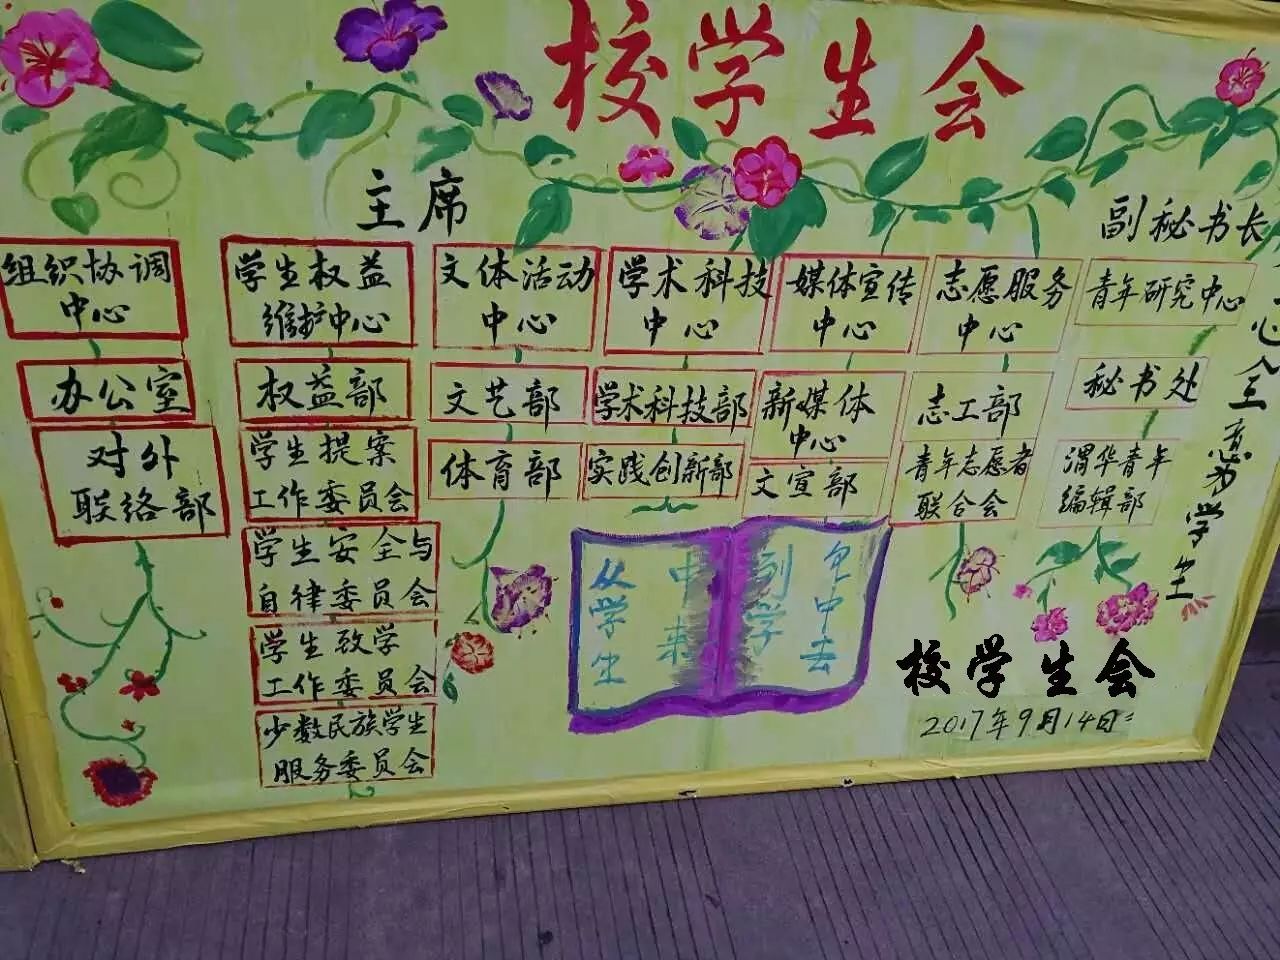 校学生会
主席
副秘书长
组织协调
中心
办公室
对外
联络部
学生权益
维护中心
权益部
学生提案
工作委员会
学生安全与
自律委员会
学生致学
工作委员会
少数民族学生
服务委员会
文体活动
中心
文艺部
体育部
学术科技
中心
学术科技部
实践创新部
媒体宣传
中心
新媒体
中心
文宣部
志愿服务
中心
志工部
青年志愿者
联合会
青年研究中心
秘书处
渭华青年
编辑部
心全意为学生
从学生
中来
到学
中去
校学生会
2017年9月14日